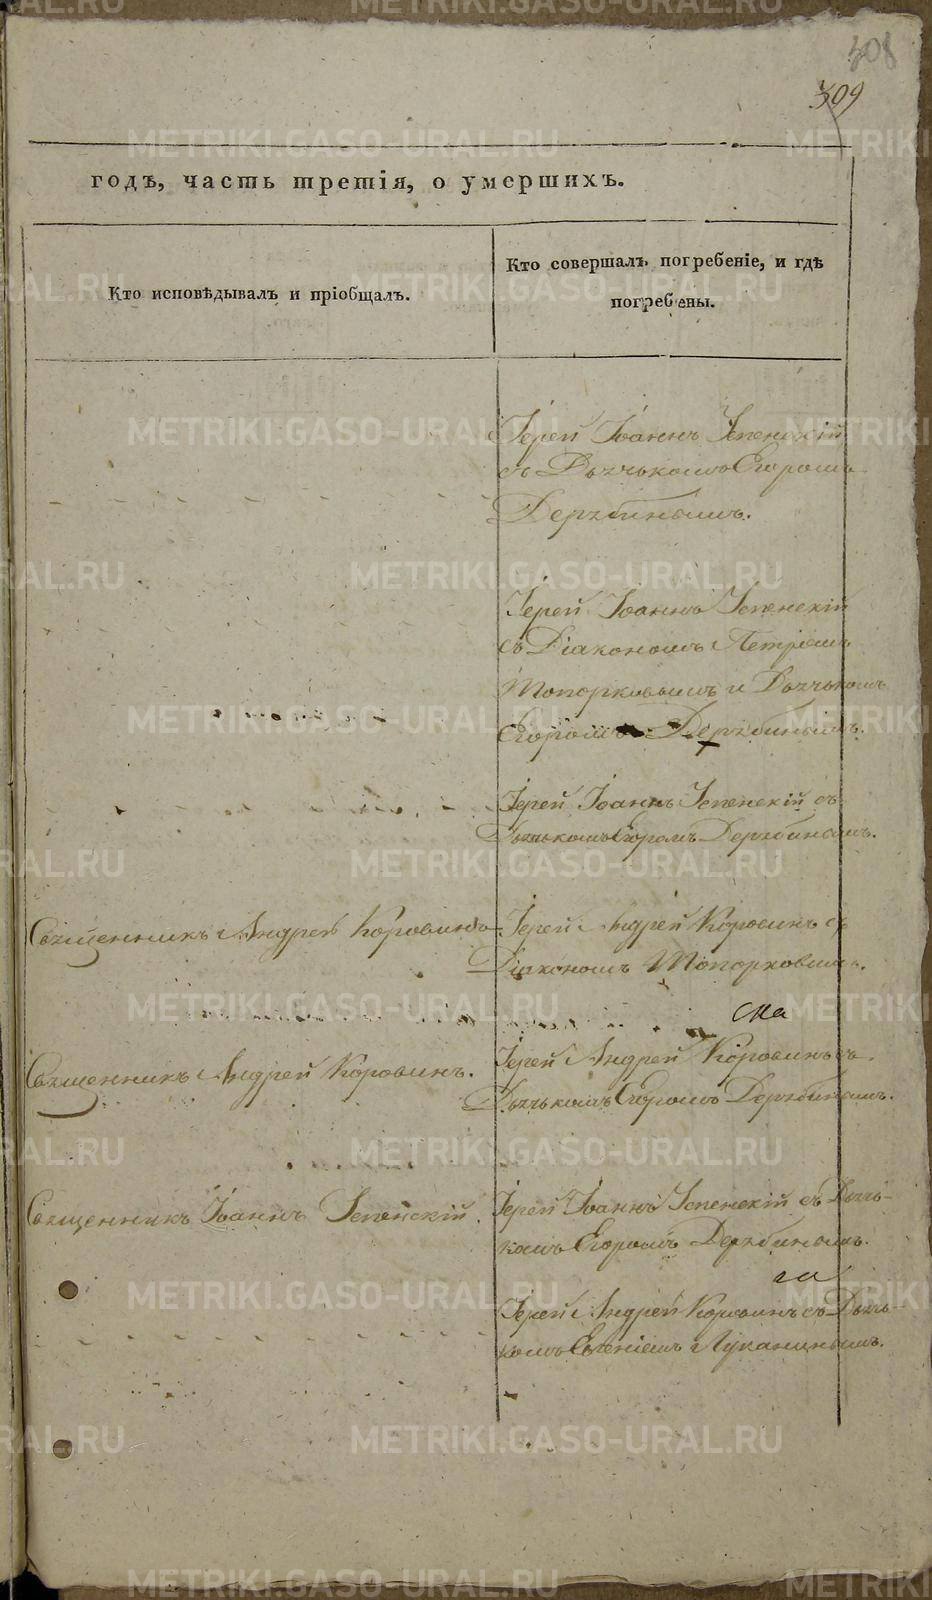 308
309
годъ, часть третія, о умершихъ.
Кто исповѣдывалъ и пріобщалъ.
Кто совершалъ погребеніе, и гдѣ
погребены.
Іерей Іоаннъ Успенскій
съ Дьячькомъ Егоромъ
Дерябинымъ.
Іерей Іоаннъ Успенскій
съ Діакономъ Петромъ
Топорковымъ и Дьячькомъ
Егоромъ Дерябинымъ.
Іерей Іоаннъ Успенскій съ
Дьячькомъ Егоромъ Дерябинымъ.
Священникъ Андрей Коровинъ
Іерей Андрей Коровинъ съ
Діакономъ Топорковымъ.
Священникъ Андрей Коровинъ.
Іерей Андрей Коровинъ съ
Дьячькомъ Егоромъ Дерябинымъ.
Священникъ Іоаннъ Успенскій.
Іерей Іоаннъ Успенскій съ Дьячь-
комъ Егоромъ Дерябинымъ.
Іерей Андрей Коровинъ съ Дьячь-
комъ Евгеніемъ Лукининымъ.